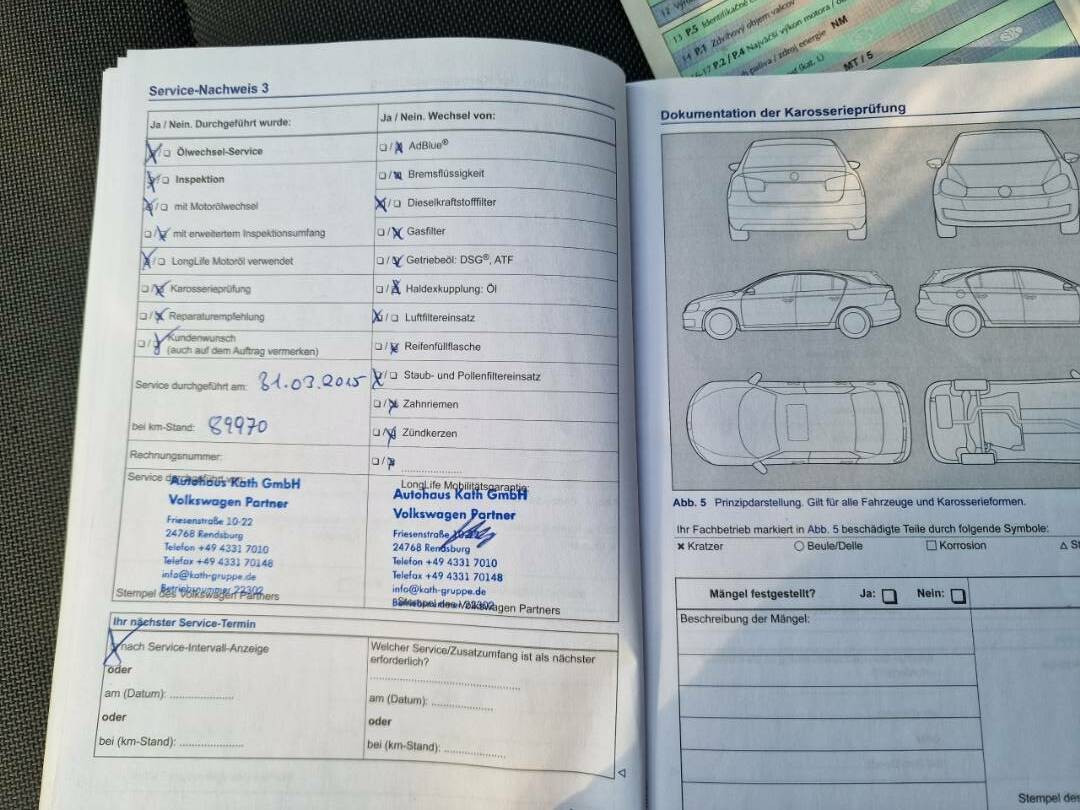 Service-Nachweis 3
Ja / Nein. Durchgeführt wurde:
☒/☐ Ölwechsel-Service
☒/☐ Inspektion
☒/☐ mit Motorölwechsel
☐/☒ mit erweitertem Inspektionsumfang
☒/☐ LongLife Motoröl verwendet
☐/☒ Karosserieprüfung
☐/☒ Reparaturempfehlung
☐/☒ Kundenwunsch
(auch auf dem Auftrag vermerken)
Service durchgeführt am: 31.03.2015
bei km-Stand: 89970
Rechnungsnummer:
Service durchgeführt
Autohaus Kath GmbH
Volkswagen Partner
Friesenstraße 10-22
24768 Rendsburg
Telefon +49 4331 7010
Telefax +49 4331 70148
info@kath-gruppe.de
Betriebsnummer 22302
Stempel des Volkswagen Partners
Ja / Nein. Wechsel von:
☐/☒ AdBlue®
☐/☒ Bremsflüssigkeit
☒/☐ Dieselkraftstofffilter
☐/☒ Gasfilter
☐/☒ Getriebeöl: DSG®, ATF
☐/☒ Haldexkupplung: Öl
☒/☐ Luftfiltereinsatz
☐/☒ Reifenfüllflasche
☒/☐ Staub- und Pollenfiltereinsatz
☐/☒ Zahnriemen
☐/☒ Zündkerzen
☐/☒ ....................
LongLife Mobilitätsgarantie:
Autohaus Kath GmbH
Volkswagen Partner
Friesenstraße 10-22
24768 Rendsburg
Telefon +49 4331 7010
Telefax +49 4331 70148
info@kath-gruppe.de
Betriebsnummer 22302
Stempel des Volkswagen Partners
Ihr nächster Service-Termin
☒ nach Service-Intervall-Anzeige
oder
am (Datum): ....................
oder
bei (km-Stand): ....................
Welcher Service/Zusatzumfang ist als nächster
erforderlich?
am (Datum): ....................
oder
bei (km-Stand): ....................
12
13 P.5 Identifikačné
14 P.1 Zdvihový objem valcov
16-17 P.2 / P.4 Najväčší výkon motora
paliva / zdroj energie NM
(kat. L) MT / 5
Dokumentation der Karosserieprüfung
Abb. 5 Prinzipdarstellung. Gilt für alle Fahrzeuge und Karosserieformen.
Ihr Fachbetrieb markiert in Abb. 5 beschädigte Teile durch folgende Symbole:
✖ Kratzer ○ Beule/Delle □ Korrosion △
Mängel festgestellt? Ja: ☐ Nein: ☐
Beschreibung der Mängel:
Stempel des